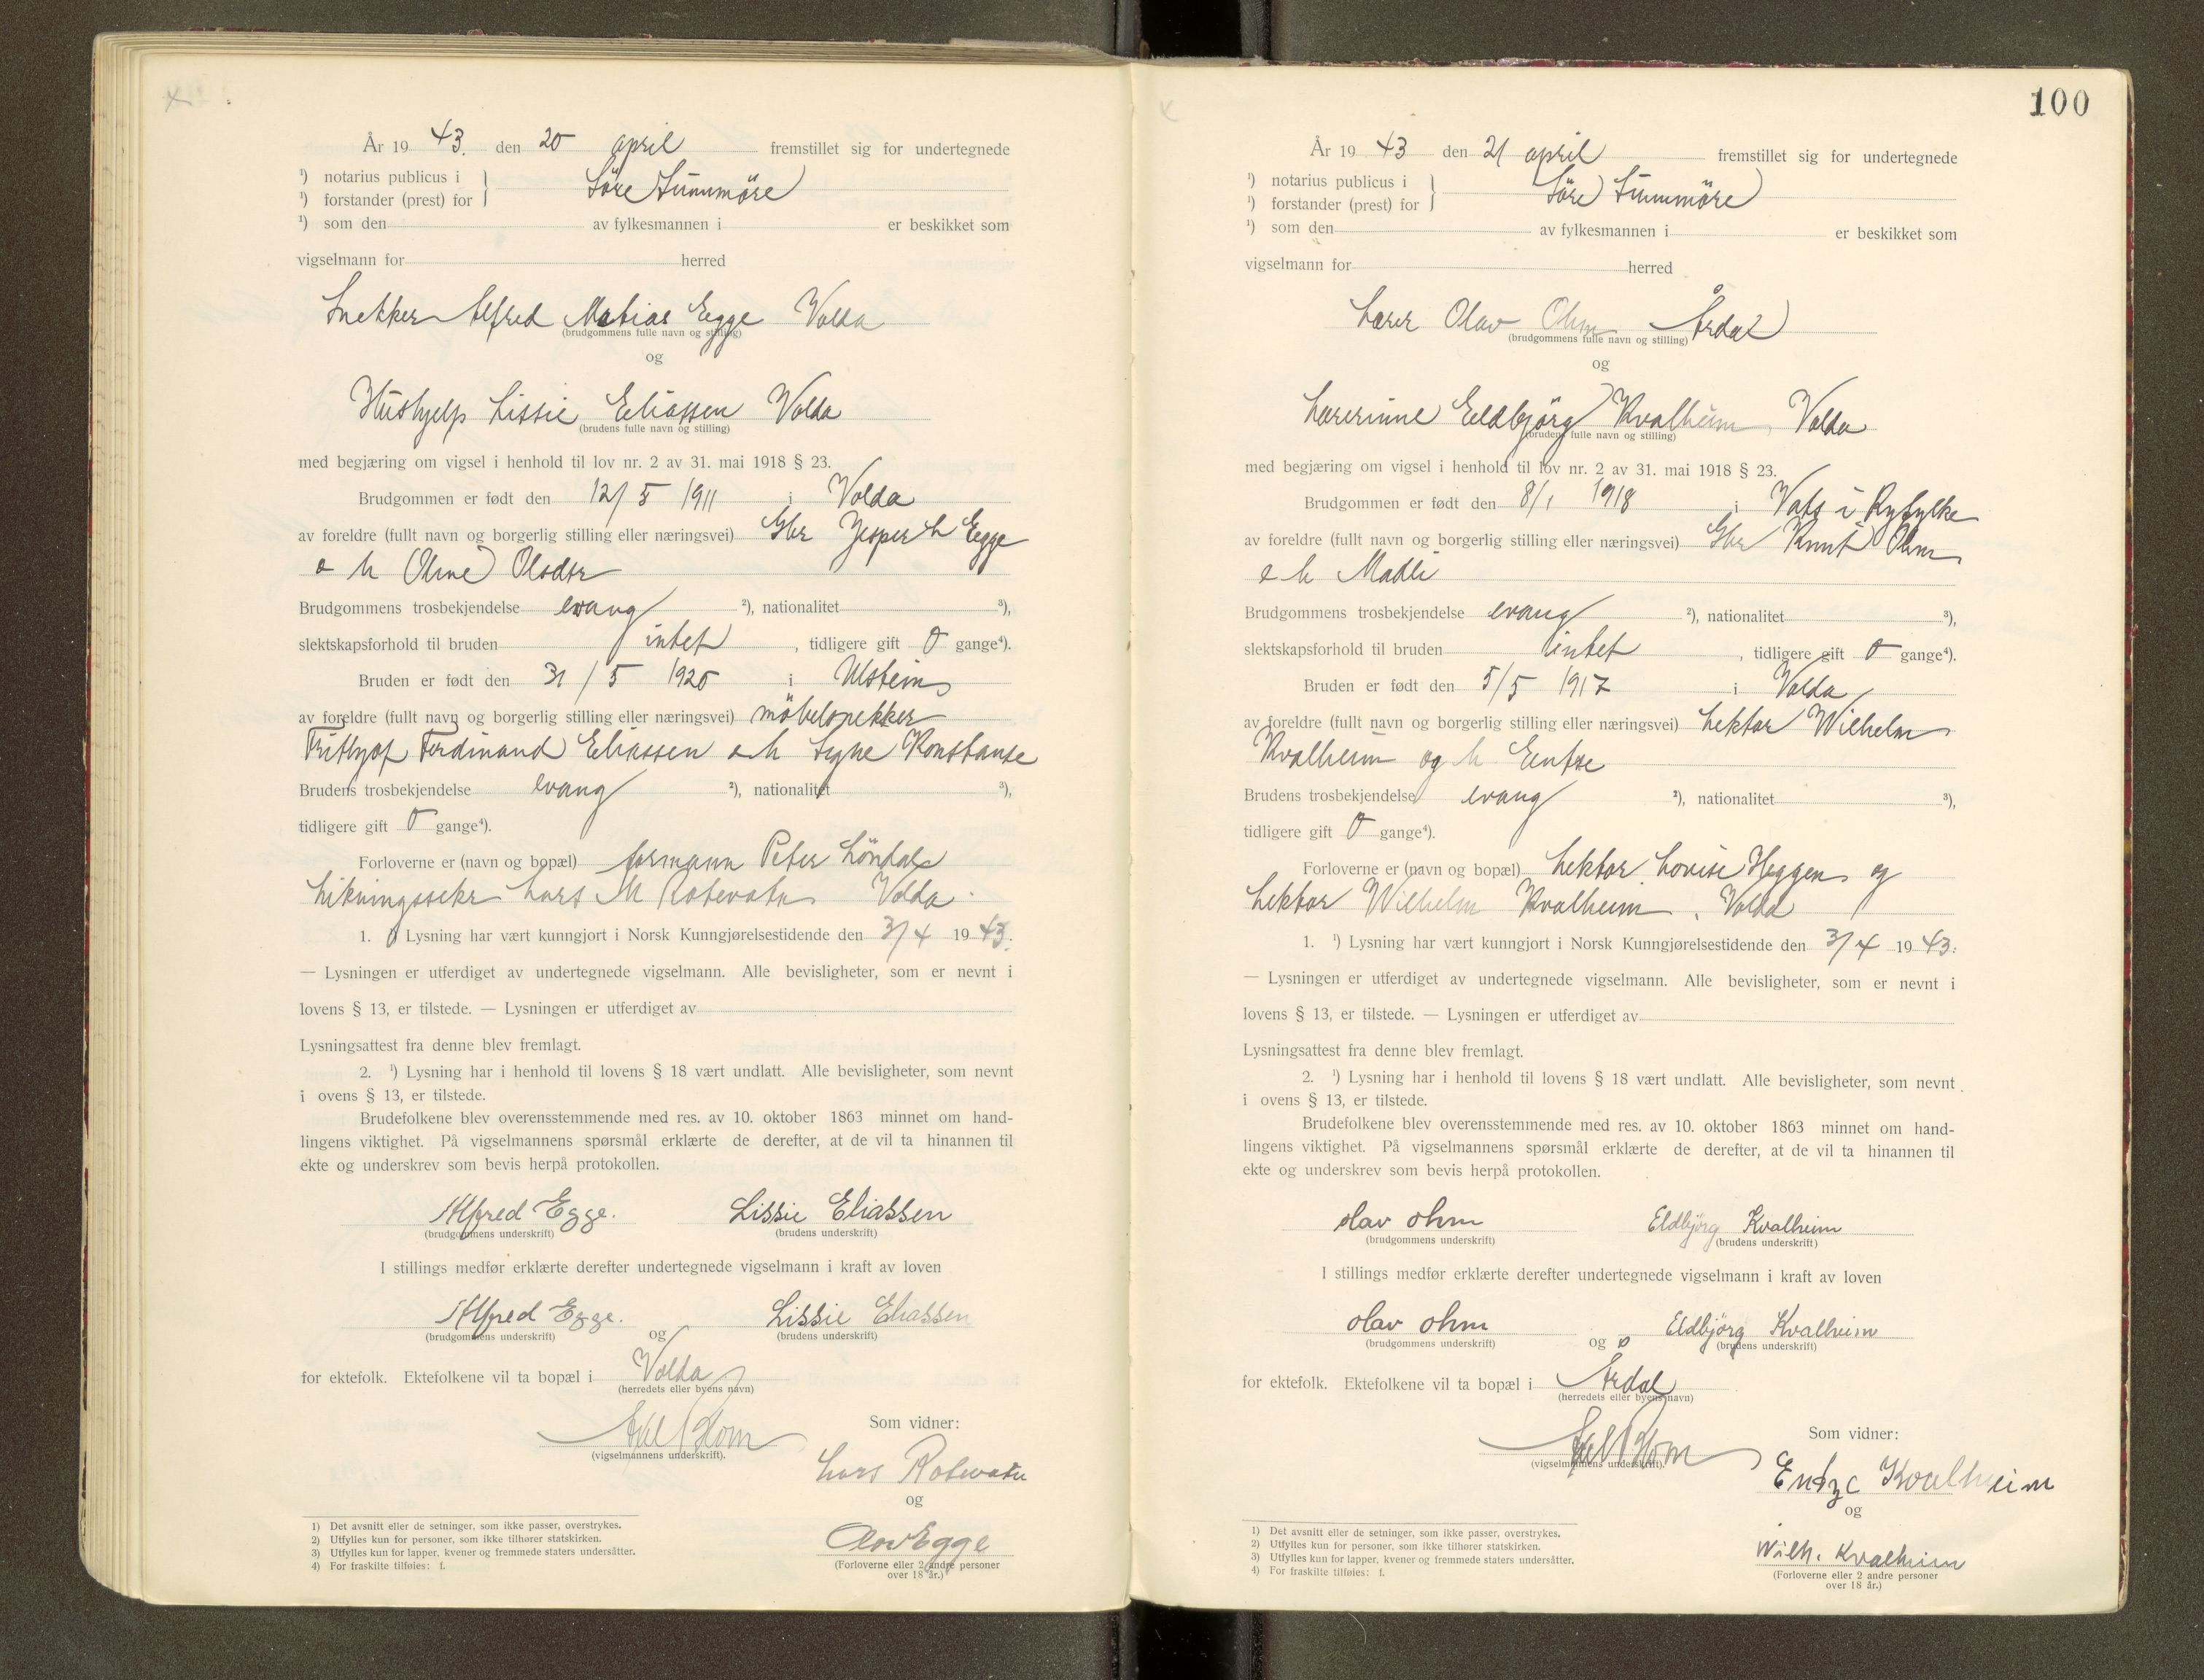 År 19 43. den 20 april fremstillet sig for undertegnede
¹) notarius publicus i
¹) forstander (prest) for } Söre Sunnmöre
¹) som den av fylkesmannen i er beskikket som
vigselmann for herred
Snekker Alfred Matias Egge Volda
(brudgommens fulle navn og stilling)
og
Hushjelp Lissie Eliassen Volda
(brudens fulle navn og stilling)
med begjæring om vigsel i henhold til lov nr. 2 av 31. mai 1918 § 23.
Brudgommen er født den 12/5 1911 i Volda
av foreldre (fullt navn og borgerlig stilling eller næringsvei) Gbr Jesper L Egge
o h Olsdtr
Brudgommens trosbekjendelse evang ²), nationalitet ³),
slektskapsforhold til bruden intet , tidligere gift 0 gange⁴).
Bruden er født den 31/5 1920 i Ulstein
av foreldre (fullt navn og borgerlig stilling eller næringsvei) möbelsnekker
Frithjof Ferdinand Eliassen o h Signe Konstanse
Brudens trosbekjendelse evang ²), nationalitet ³),
tidligere gift 0 gange⁴).
Forloverne er (navn og bopæl) formann Peter Löndal
Likningssekr Lars M Rotevatn Volda
1. ¹) Lysning har vært kunngjort i Norsk Kunngjørelsestidende den 3/4 1943.
— Lysningen er utferdiget av undertegnede vigselmann. Alle bevisligheter, som er nevnt i
lovens § 13, er tilstede. — Lysningen er utferdiget av
Lysningsattest fra denne blev fremlagt.
2. ¹) Lysning har i henhold til lovens § 18 vært undlatt. Alle bevisligheter, som nevnt
i ovens § 13, er tilstede.
Brudefolkene blev overensstemmende med res. av 10. oktober 1863 minnet om hand-
lingens viktighet. På vigselmannens spørsmål erklærte de derefter, at de vil ta hinannen til
ekte og underskrev som bevis herpå protokollen.
Alfred Egge. Lissie Eliassen
(brudgommens underskrift) (brudens underskrift)
I stillings medfør erklærte derefter undertegnede vigselmann i kraft av loven
Alfred Egge. Lissie Eliassen
(brudgommens underskrift) og (brudens underskrift)
for ektefolk. Ektefolkene vil ta bopæl i Volda
(herredets eller byens navn)
Som vidner:
(vigselmannens underskrift).
Lars Rotevatn
og
Olav Egge
(Forloverne eller 2 andre personer
over 18 år.)
1) Det avsnitt eller de setninger, som ikke passer, overstrykes.
2) Utfylles kun for personer, som ikke tilhører statskirken.
3) Utfylles kun for lapper, kvener og fremmede staters undersåtter.
4) For fraskilte tilføies: f.
100
År 19 43 den 21 april fremstillet sig for undertegnede
¹) notarius publicus i
¹) forstander (prest) for } Söre Sunnmöre
¹) som den av fylkesmannen i er beskikket som
vigselmann for herred
Lærer Olav Ohm Årdal
(brudgommens fulle navn og stilling)
og
Lærerinne Eldbjörg Kvalheim, Volda
(brudens fulle navn og stilling)
med begjæring om vigsel i henhold til lov nr. 2 av 31. mai 1918 § 23.
Brudgommen er født den 8/1 1918 i Vats i Ryfylke
av foreldre (fullt navn og borgerlig stilling eller næringsvei) Gbr Knut Ohm
o h Madli
Brudgommens trosbekjendelse evang ²), nationalitet ³),
slektskapsforhold til bruden intet , tidligere gift 0 gange⁴).
Bruden er født den 5/5 1917 i Volda
av foreldre (fullt navn og borgerlig stilling eller næringsvei) Lektor Wilhelm
Kvalheim og h
Brudens trosbekjendelse evang ²), nationalitet ³),
tidligere gift 0 gange⁴).
Forloverne er (navn og bopæl) Lektor Lovise Heggen og
Lektor Wilhelm Kvalheim, Volda
1. ¹) Lysning har vært kunngjort i Norsk Kunngjørelsestidende den 3/4 1943.
— Lysningen er utferdiget av undertegnede vigselmann. Alle bevisligheter, som er nevnt i
lovens § 13, er tilstede. — Lysningen er utferdiget av
Lysningsattest fra denne blev fremlagt.
2. ¹) Lysning har i henhold til lovens § 18 vært undlatt. Alle bevisligheter, som nevnt
i ovens § 13, er tilstede.
Brudefolkene blev overensstemmende med res. av 10. oktober 1863 minnet om hand-
lingens viktighet. På vigselmannens spørsmål erklærte de derefter, at de vil ta hinannen til
ekte og underskrev som bevis herpå protokollen.
Olav Ohm Eldbjörg Kvalheim
(brudgommens underskrift) (brudens underskrift)
I stillings medfør erklærte derefter undertegnede vigselmann i kraft av loven
Olav Ohm Eldbjörg Kvalheim
(brudgommens underskrift) og (brudens underskrift)
for ektefolk. Ektefolkene vil ta bopæl i Årdal
(herredets eller byens navn)
Som vidner:
(vigselmannens underskrift).
Kvalheim
og
Wilh. Kvalheim
(Forloverne eller 2 andre personer
over 18 år.)
1) Det avsnitt eller de setninger, som ikke passer, overstrykes.
2) Utfylles kun for personer, som ikke tilhører statskirken.
3) Utfylles kun for lapper, kvener og fremmede staters undersåtter.
4) For fraskilte tilføies: f.